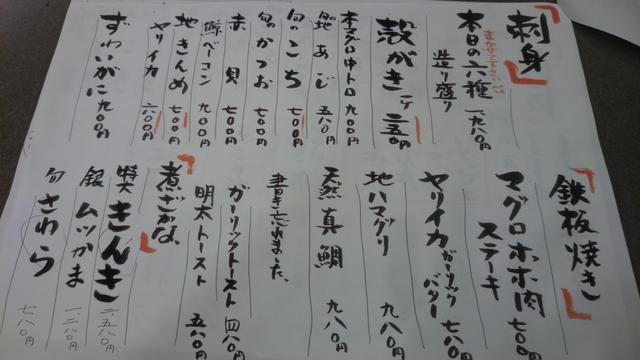 刺身
まかせて下さい
本日の六種
造り盛り 一九八〇円
殻がき 一ケ 三五〇円
本マグロ中トロ 九〇〇円
地あじ 五八〇円
旬のこち 七〇〇円
旬かつお 七〇〇円
赤貝 七〇〇円
鯨ベーコン 九〇〇円
地きんめ 七〇〇円
ヤリイカ 六八〇円
ずわいがに 九〇〇円
鉄板焼き
マグロホホ肉
ステーキ 七〇〇円
ヤリイカ ガーリック
バター 七八〇円
地ハマグリ 九八〇円
天然真鯛 九八〇円
書き忘れました、
ガーリックトースト 四八〇円
明太トースト 五八〇円
煮ざかな
特大きんき 二、五八〇円
銀ムツかま 一二八〇円
旬さわら 七八〇円